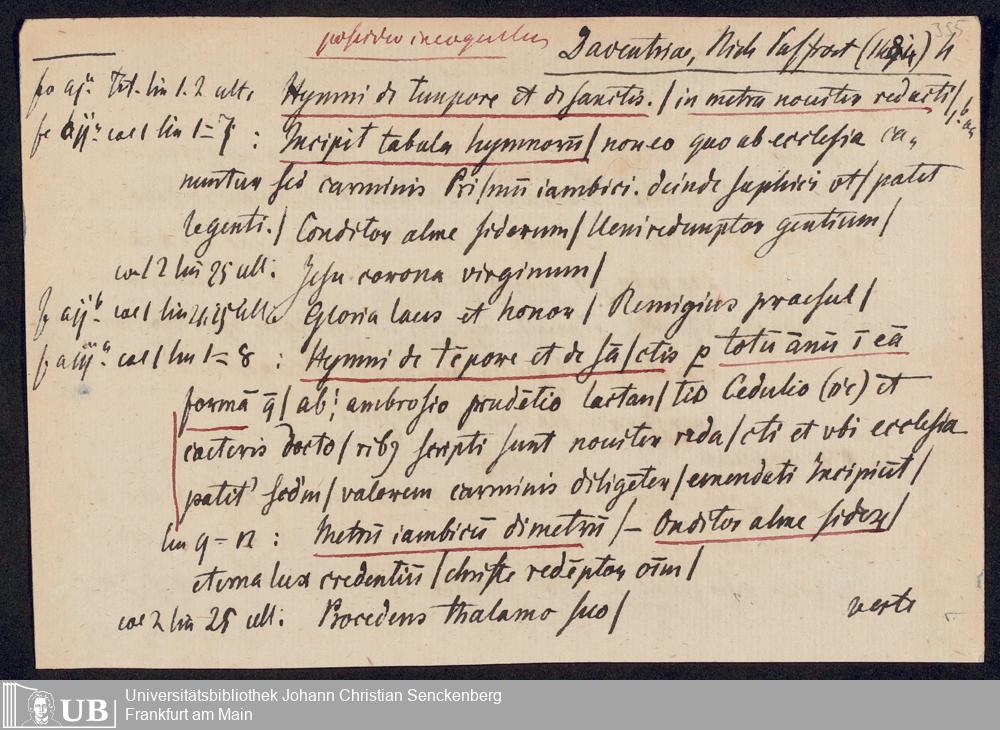 355
possideo incognitus
Daventriae, Rich Paffroet h
fo aj a Tit. lin 1. 2 ult. Hymni de tempore et de sanctis. / in metra nouiter redacti /
fo aij a col 1 lin 1=7 : Incipit tabula hymnorū / non eo quo ab ecclesia ca,,
nuntur sed carminis Pri/mū iambici. deinde saphici vt / patet
legenti. / Conditor alme siderum / Ueni redemptor gentium /
col 2 lin 25 ult: Jesu corona virginum /
fo aij b col 1 lin 24. 25 ult. Gloria laus et honor / Remigius praesul /
fo aiij a col 1 lin 1=8 : Hymni de tēpore et de sā/ctis p totū ānū ī eā
formā q̄ / ab ambrosio prudētio lactan/tio Cedulio (sic) et
caeteris docto/ribꝫ scripti sunt nouiter reda/cti et vbi ecclesia
patit' scdm / valorem carminis diligēter / emendati Incipiūt /
lin 9=12 : Metrū iambicū dimetrū /– Onditor alme sideꝝ /
eterna lux credentiū / christe redēptor oīm /
col 2 lin 25 ult: Procedens thalamo suo / verte
UB Universitätsbibliothek Johann Christian Senckenberg
Frankfurt am Main